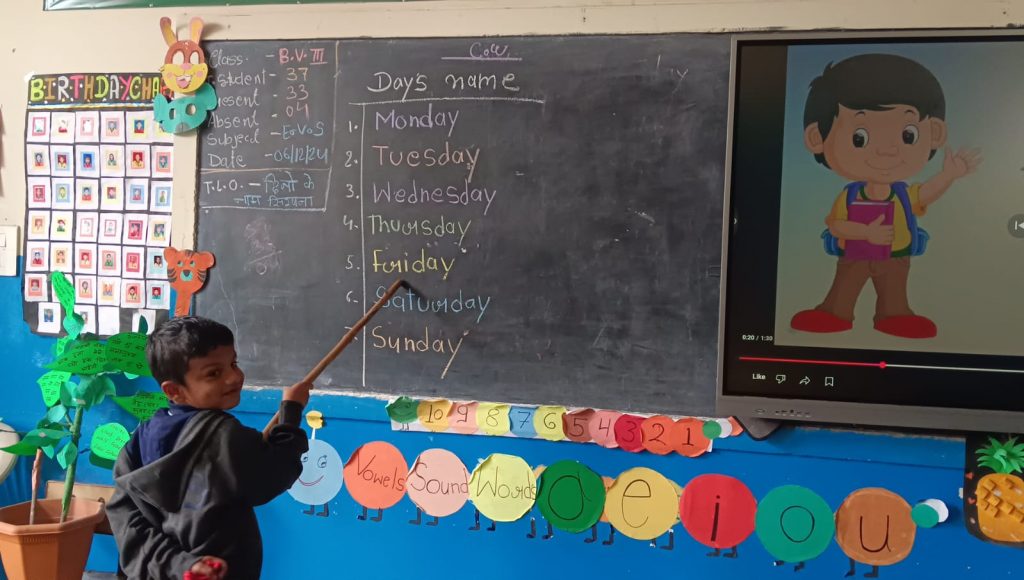 BIRTHDAY CHA
Class - B.V. III
Student - 37
Present - 33
Absent - 04
Subject - E.V.S
Date - 06/12/24
T.L.O. - दिनों के
नाम सिखाना
Day's name
1. Monday
2. Tuesday
3. Wednesday
4. Thursday
5. Friday
6. Saturday
Sunday
0:20 / 1:30
Like
10 9 8 7 6 5 4 3 2 1
Vowels Sound Words a e i o u